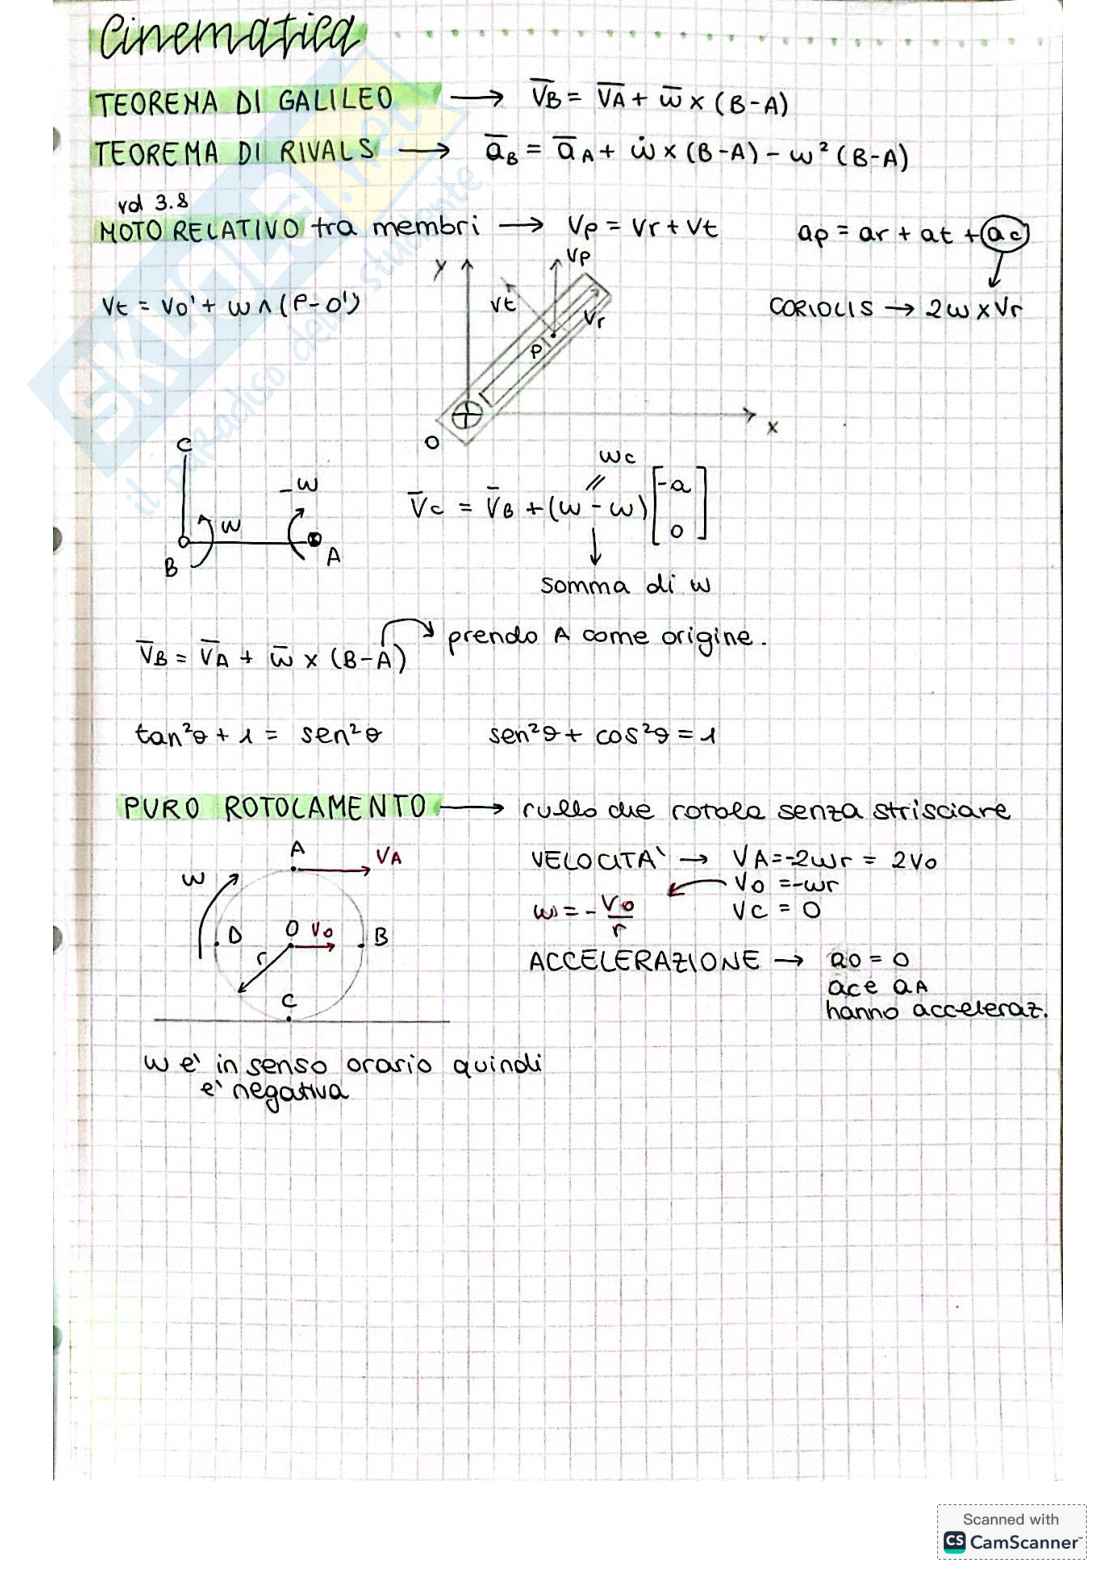 Cinematica
TEOREMA DI GALILEO → V̅B = V̅A + ω̅ × (B-A)
TEOREMA DI RIVALS → a̅B = a̅A + ω̇ × (B-A) - ω² (B-A)
vd 3.8
MOTO RELATIVO tra membri → Vp = Vr + Vt
ap = ar + at + ac
Vt = Vo' + ω ∧ (P-O')
CORIOLIS → 2ω × Vr
y
Vp
Vt
Vr
P
O
x
C
-ω
ω
B
A
ωc
//
V̅C = V̅B + (ω - ω) [-a 0]
somma di ω
V̅B = V̅A + ω̅ × (B-A)
prendo A come origine.
tan²θ + 1 = sen²θ
sen²θ + cos²θ = 1
PURO ROTOLAMENTO → rullo che rotola senza strisciare
A
VA
ω
D
O
Vo
B
r
C
VELOCITA' → VA = -2ωr = 2Vo
Vo = -ωr
ω = - Vo/r
VC = 0
ACCELERAZIONE → ao = 0
ac e aA
hanno acceleraz.
ω e' in senso orario quindi
e' negativa
SKUOLA.net
il paradiso dello studente
Scanned with
CS CamScanner